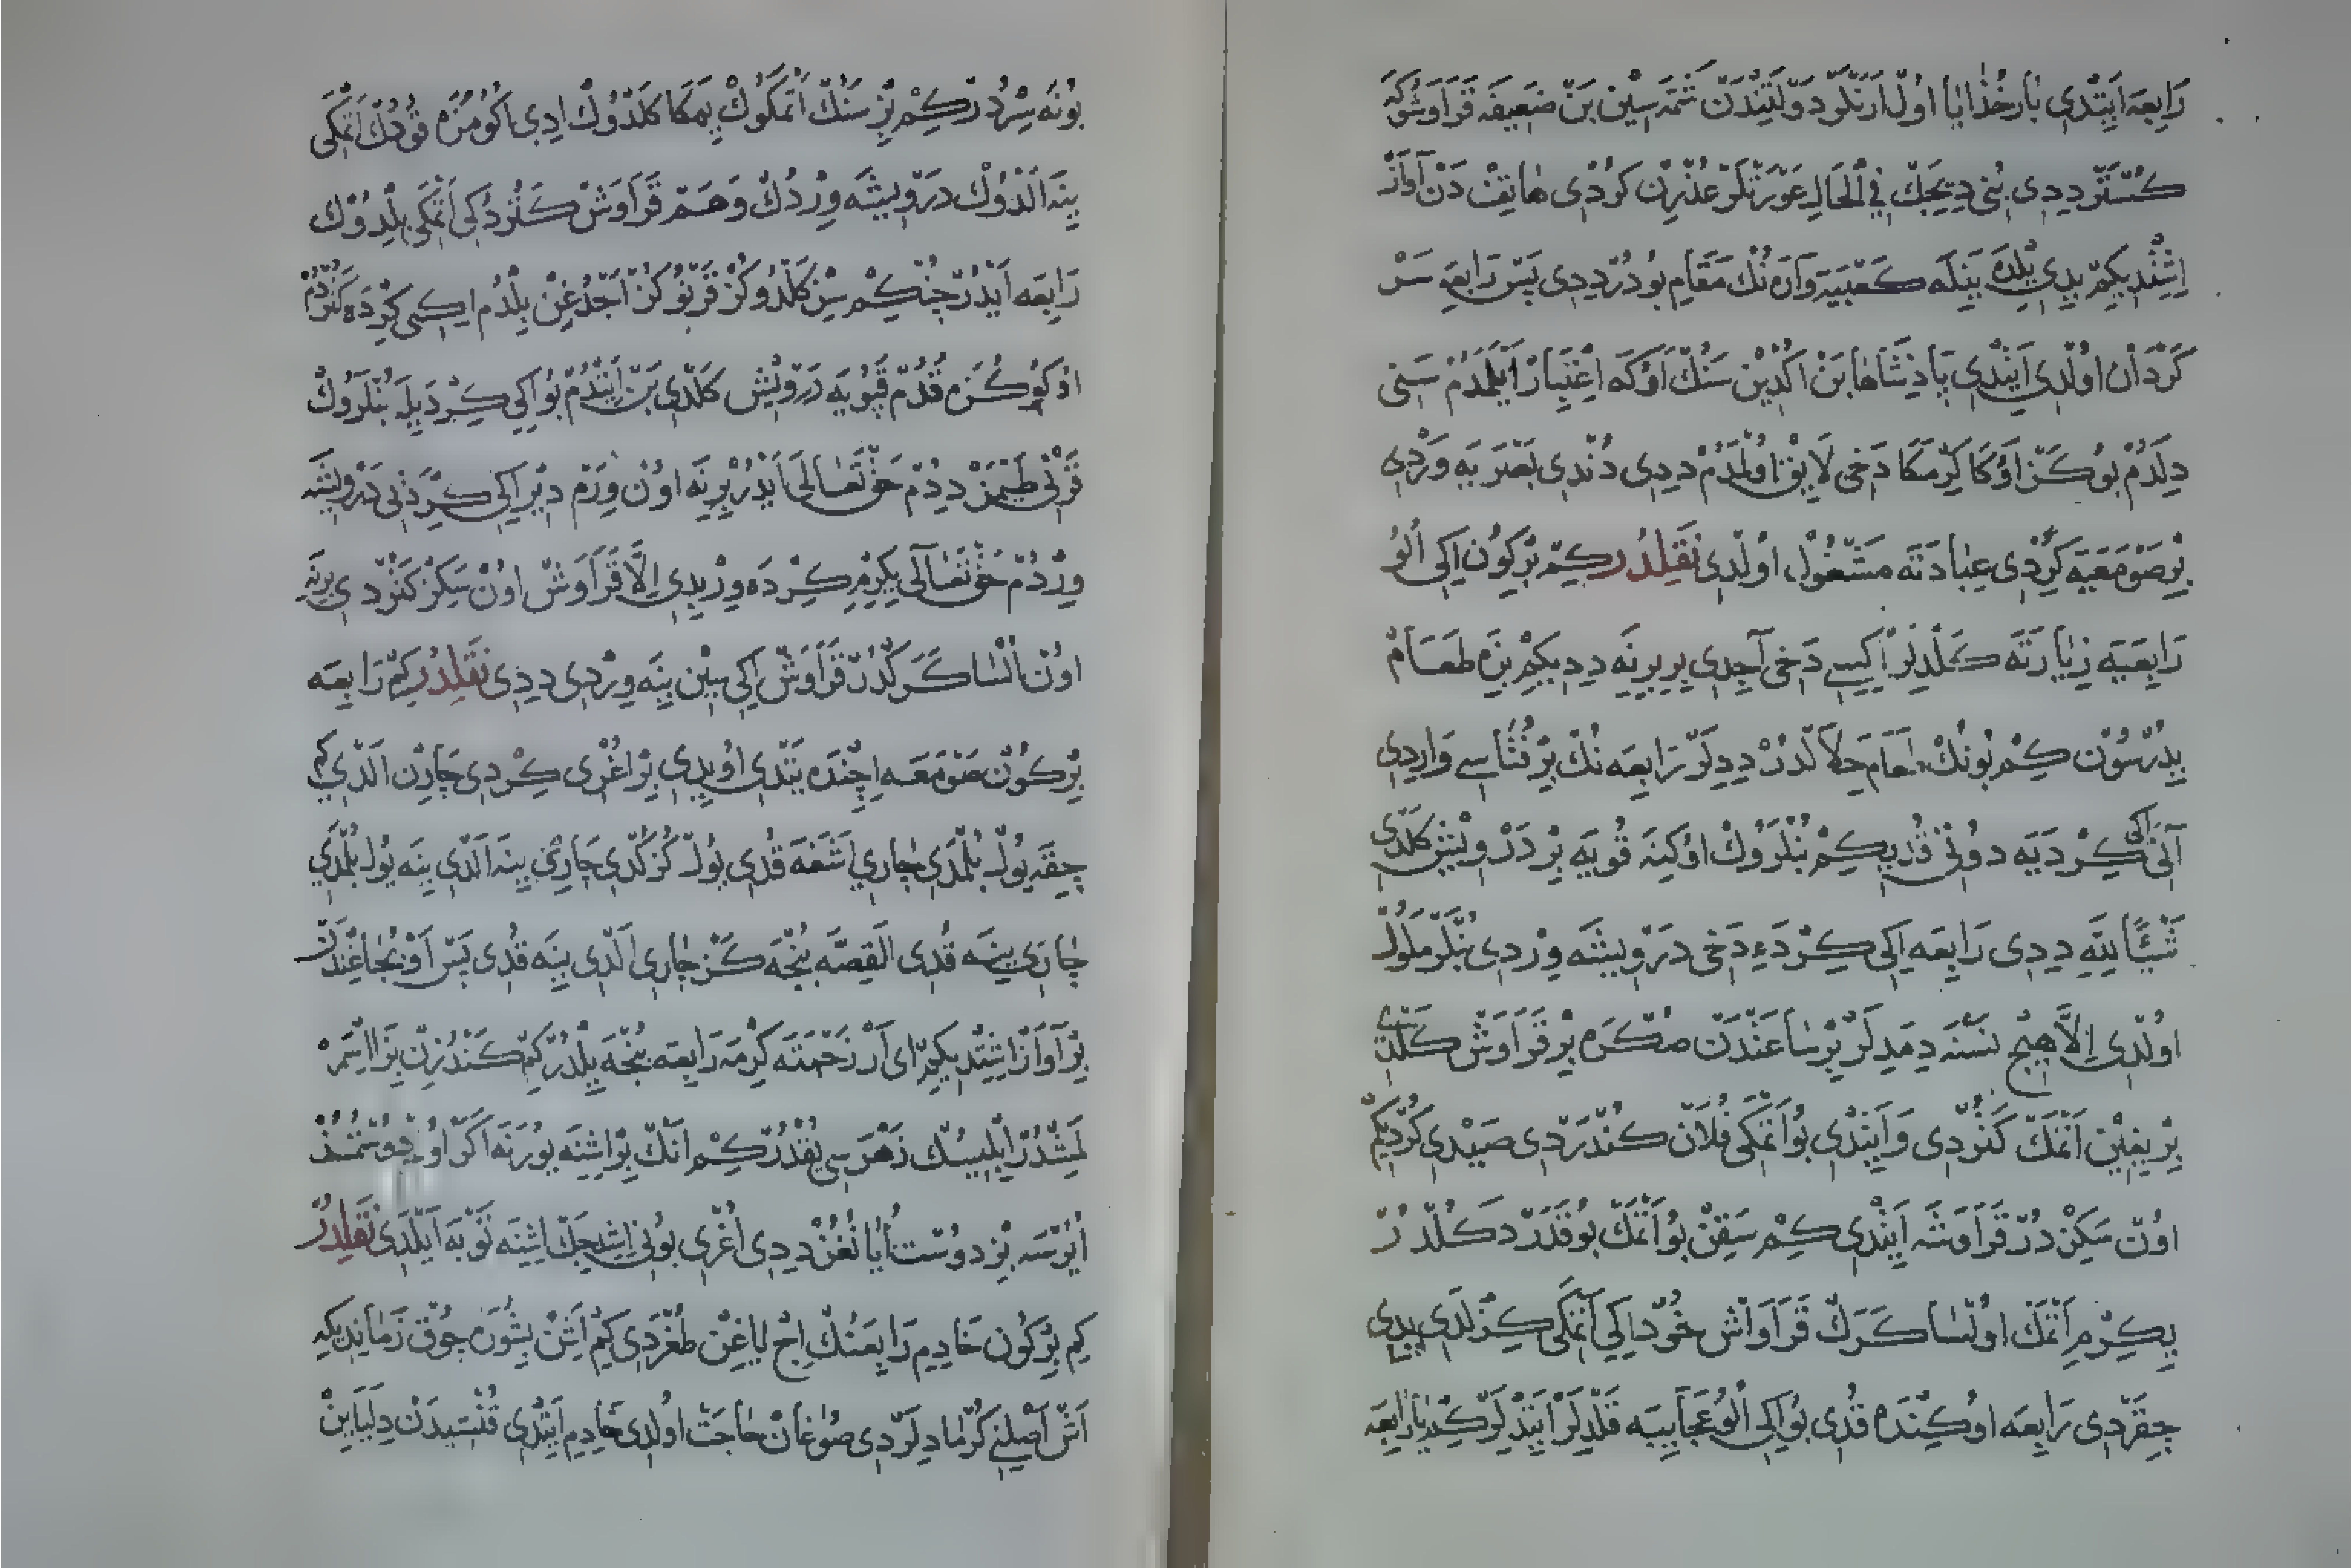 رابعه ایتدی بار خدایا اول ارنلر دولتندن شمه سین بن ضعیفه قراوشوکه
کستر ددی بنی دیجک فی الحال عورتلر عذرن کوردی هاتف دن آواز
اشتدیکم یدی یلده ینله کعبیه وارانک مقام بودر ددی پس رابعه سر
کردان اولدی ایتدی پادشاها بن اکدین سنک اوکه اعتبار ایلمدم سنی
دلدم بو کز اوکا کرمکا دخی لایق اولمدم ددی دندی بصریه وردی
بر صومعیه کردی عبادته مشغول اولدی نقلدر کم بر کون ایکی الو
رابعیه زیارته کلدیلر ایکیسی دخی آجدی بر برینه ددیکم بزه طعام
یدرسون کم بونک طعام حلالدر ددیلر رابعه نک بر فتاسی واردی
آنی ایکی کرده یه دونی قدیکم بنلروک اوکینه قپویه بر درویش کلدی
شیئا لله ددی رابعه ایکی کرده دخی درویشه وردی بنلر ملول
اولدی الا هیچ نسنه دمدیلر بر ساعتدن صکره بر قراوش کلدی
بر یغین اتمک کتوردی و ایتدی بو اتمکی فلان کندردی صیدی کردیکم
اون سکز در قراوشه ایتدی کم سقن بو اتمک بو قدر دکلدر
یکرم اتمک اولسا کرک قراوش خود ایکی اتمکی کزلدی یدی
چقردی رابعه اوکنده قدی بو ایکی الو عجاییبه قلدیلر ایتدلر کم یا رابعه
بونه سردر کم بز سنک اتمکوک یمکا کلدوک ادی اکومزه قودک اتمکی
ینه الدوک درویشه وردک و هم قراوش کتوردکی اتمکی بلدوک
رابعه ایدر چنکم سز کلدوکز قرنوکز اجدغن بلدم ایکی کرده کتردم
اوکوکزه قدم قپویه درویش کلدی بن ایتدم بو ایکی کرده یله بنلروک
قرنی طیمز ددم حق تعالی ایدر برینه اون ورم دیر ایکی کرده نی درویشه
وردم حق تعالی یکرم کرده وریدی الا قراوش اون سکز کتوردی برینه
اون السا کرکدر قراوش ایکی سین ینه وردی ددی نقلدر کم رابعه
بر کون صومعه اچنده یتدی اویدی بر اغری کردی چارن الدی کم
چقه یول بلمدی چاری اشغه قدی یول کزکلدی چارنی ینه الدی ینه یول بلمدی
چاری ینه قدی القصه نیجه کز چاری الدی ینه قدی پس اوجاغندن
بر آواز اشتدیکم ای ار زحمته کرمه رابعه نیجه ییلدر کم کندوزن بزا اسمر
لمشدر ابلیسک زهره سی یقدر کم انک بر اشنه یورنه اکر اول دوستمز
اویرسه بز دوست اویانغز ددی اغری بونی اشدجک اشنه توبه ایلدی نقلدر
کم بر کون خادم رابعه نک اچ یاغن طغردی کم اش پشوره چوق زماندیکه
اش اصلنی کرما دلردی صوغان حاجت اولدی خادم ایتدی قنشیدن دلیاین